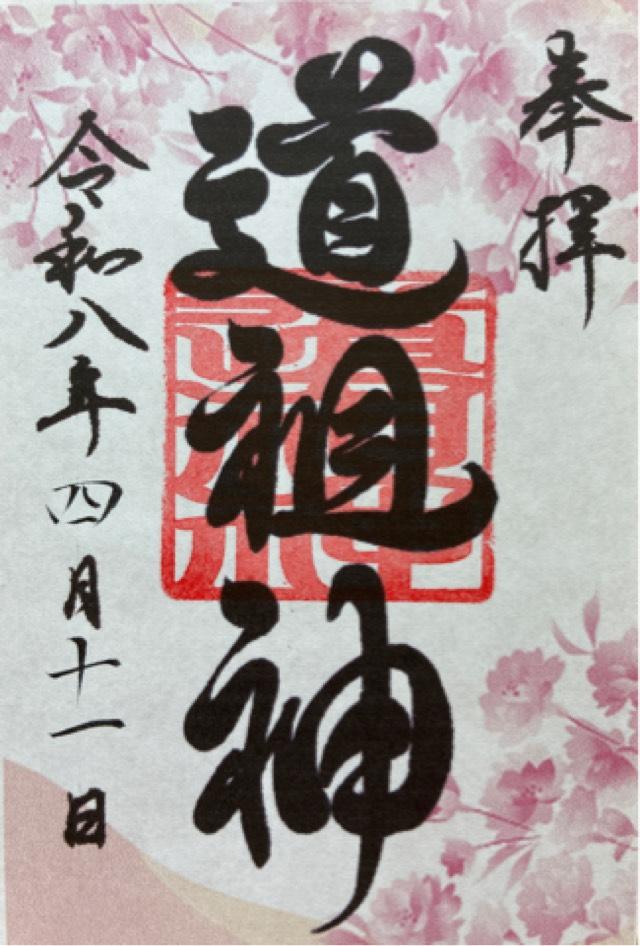 奉拝
道祖神
令和八年四月十一日